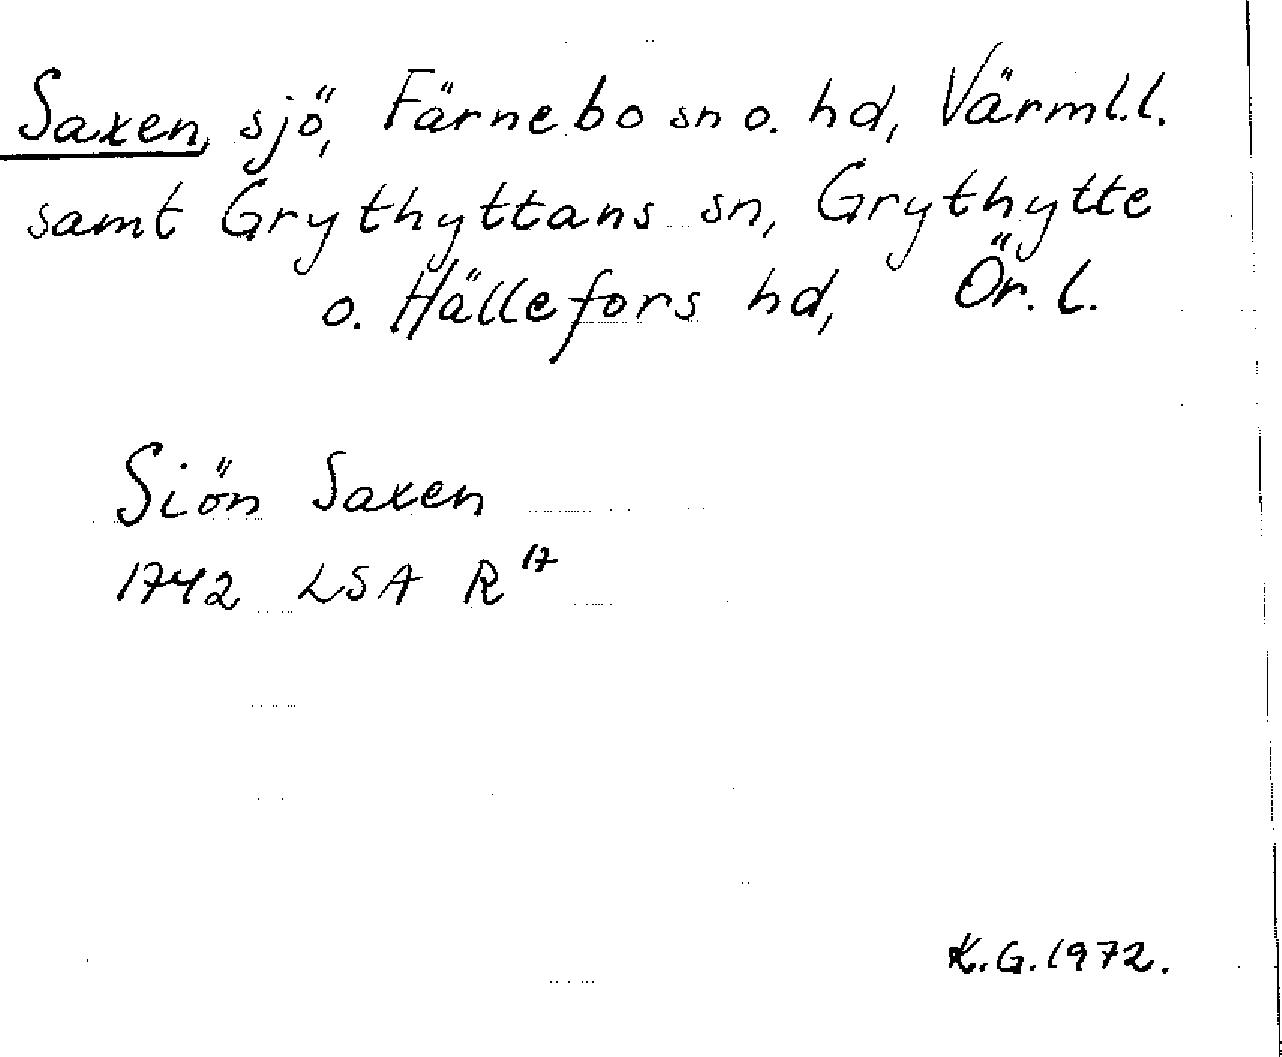 Saxen, sjö, Färnebo sn o. hd, Värml.l.
samt Grythyttans sn, Grythytte
o. Hällefors hd, Ör. l.
Siön Saxen
1742 LSA R 17
K.G. 1972.